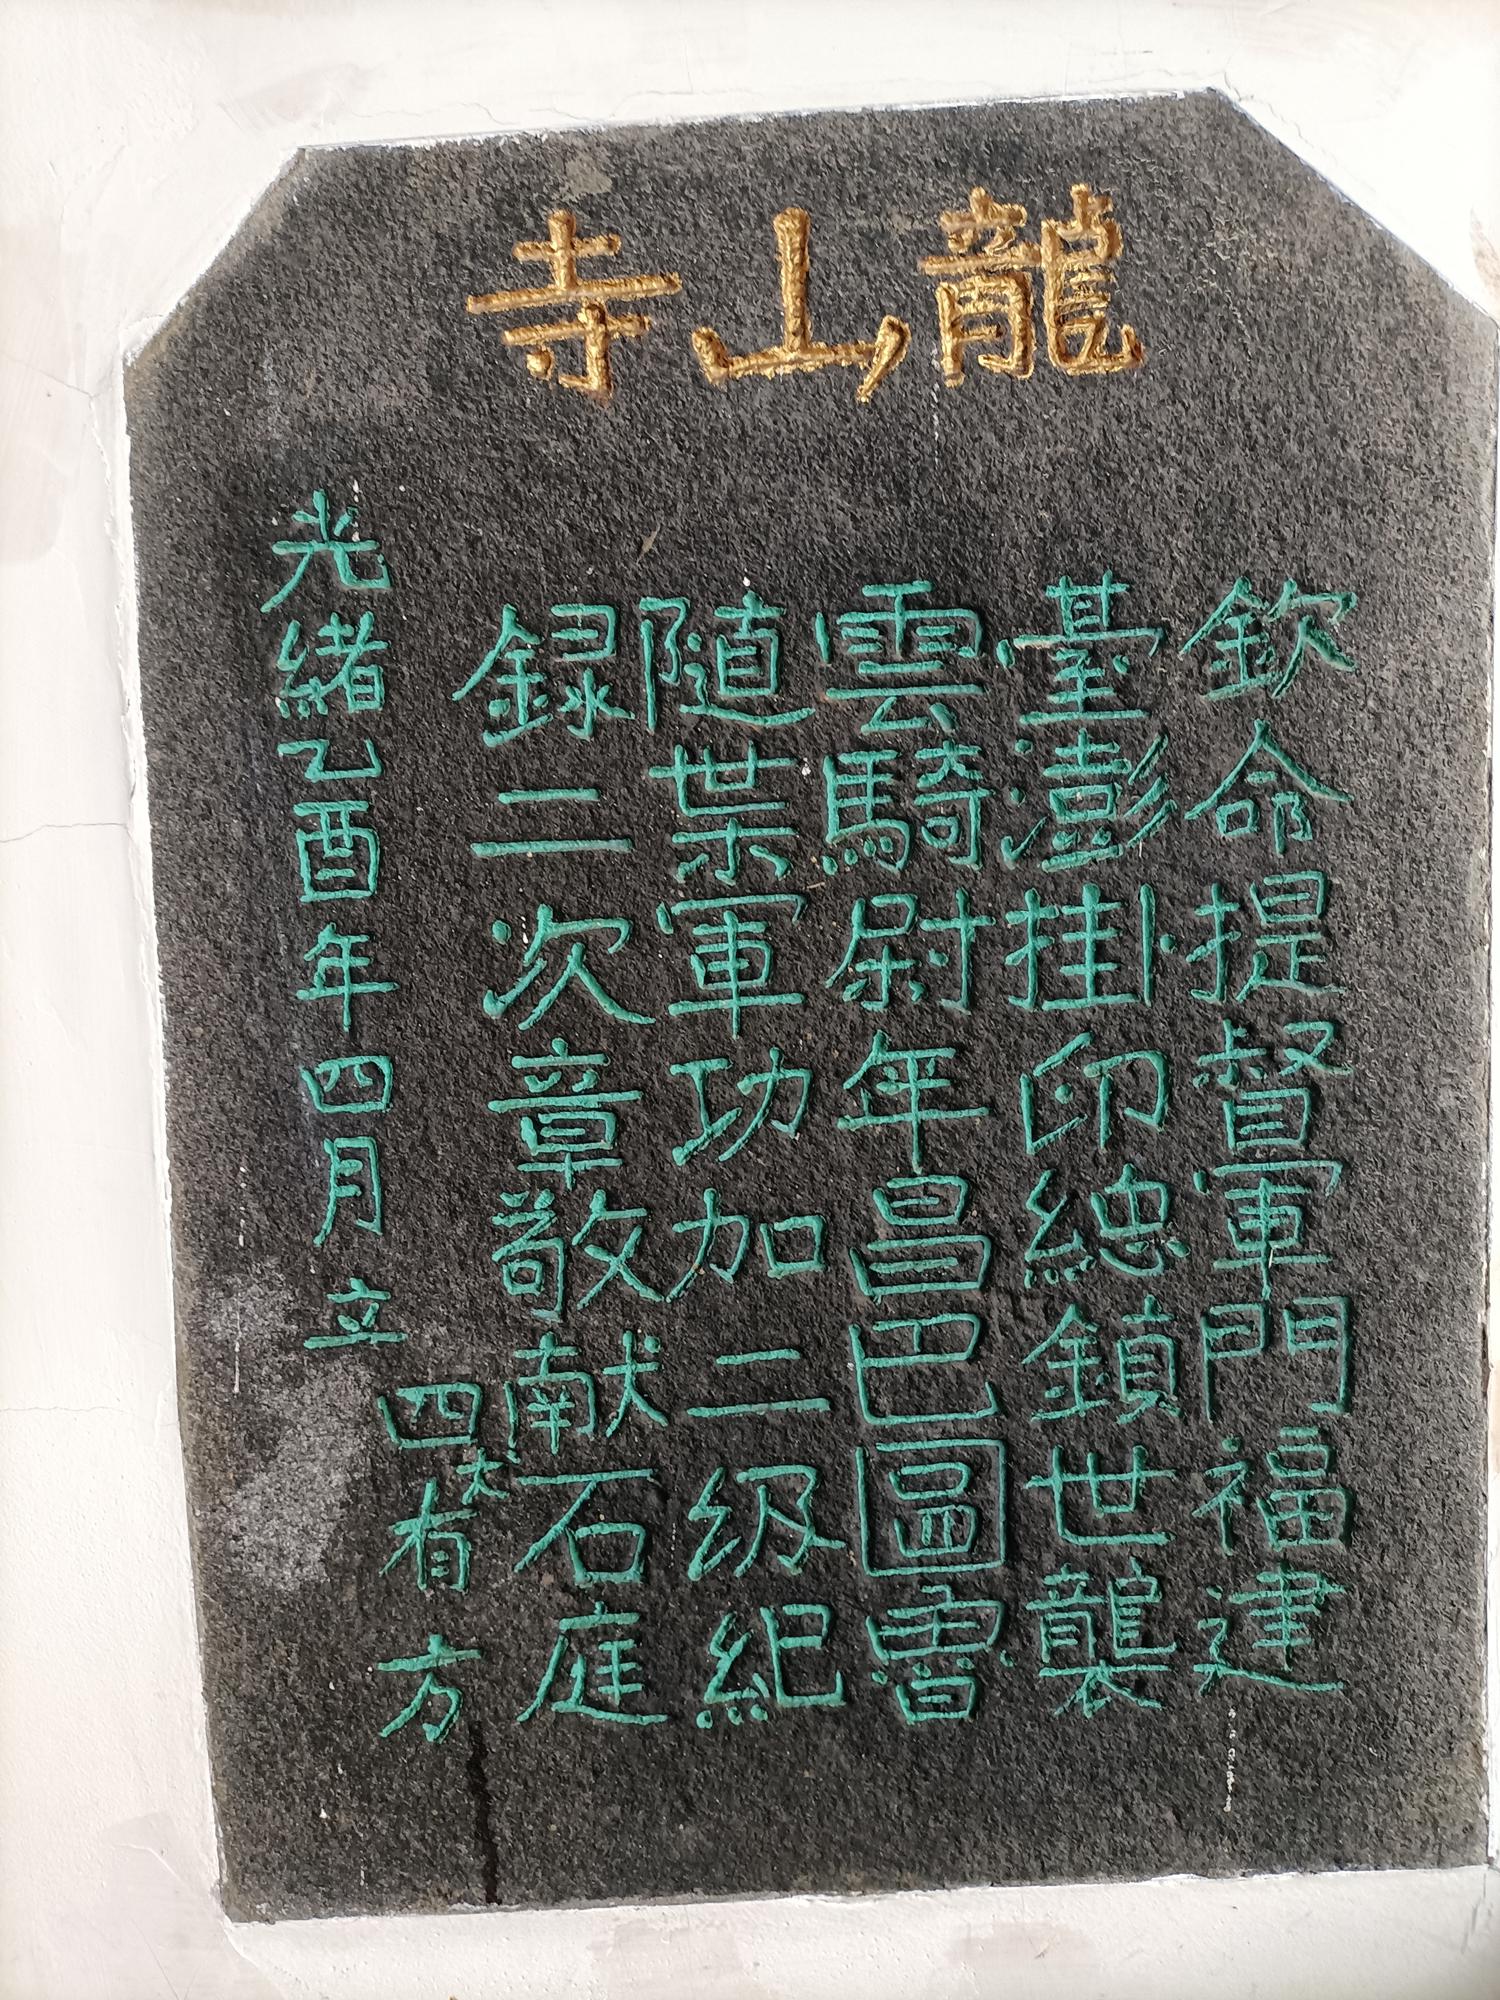 龍山寺
欽命提督軍門福建
臺澎挂印總鎮世襲
雲騎尉年昌巴圖魯
隨葉軍功加二级紀
録二次章敬献石庭
四丈有方
光緒乙酉年四月立